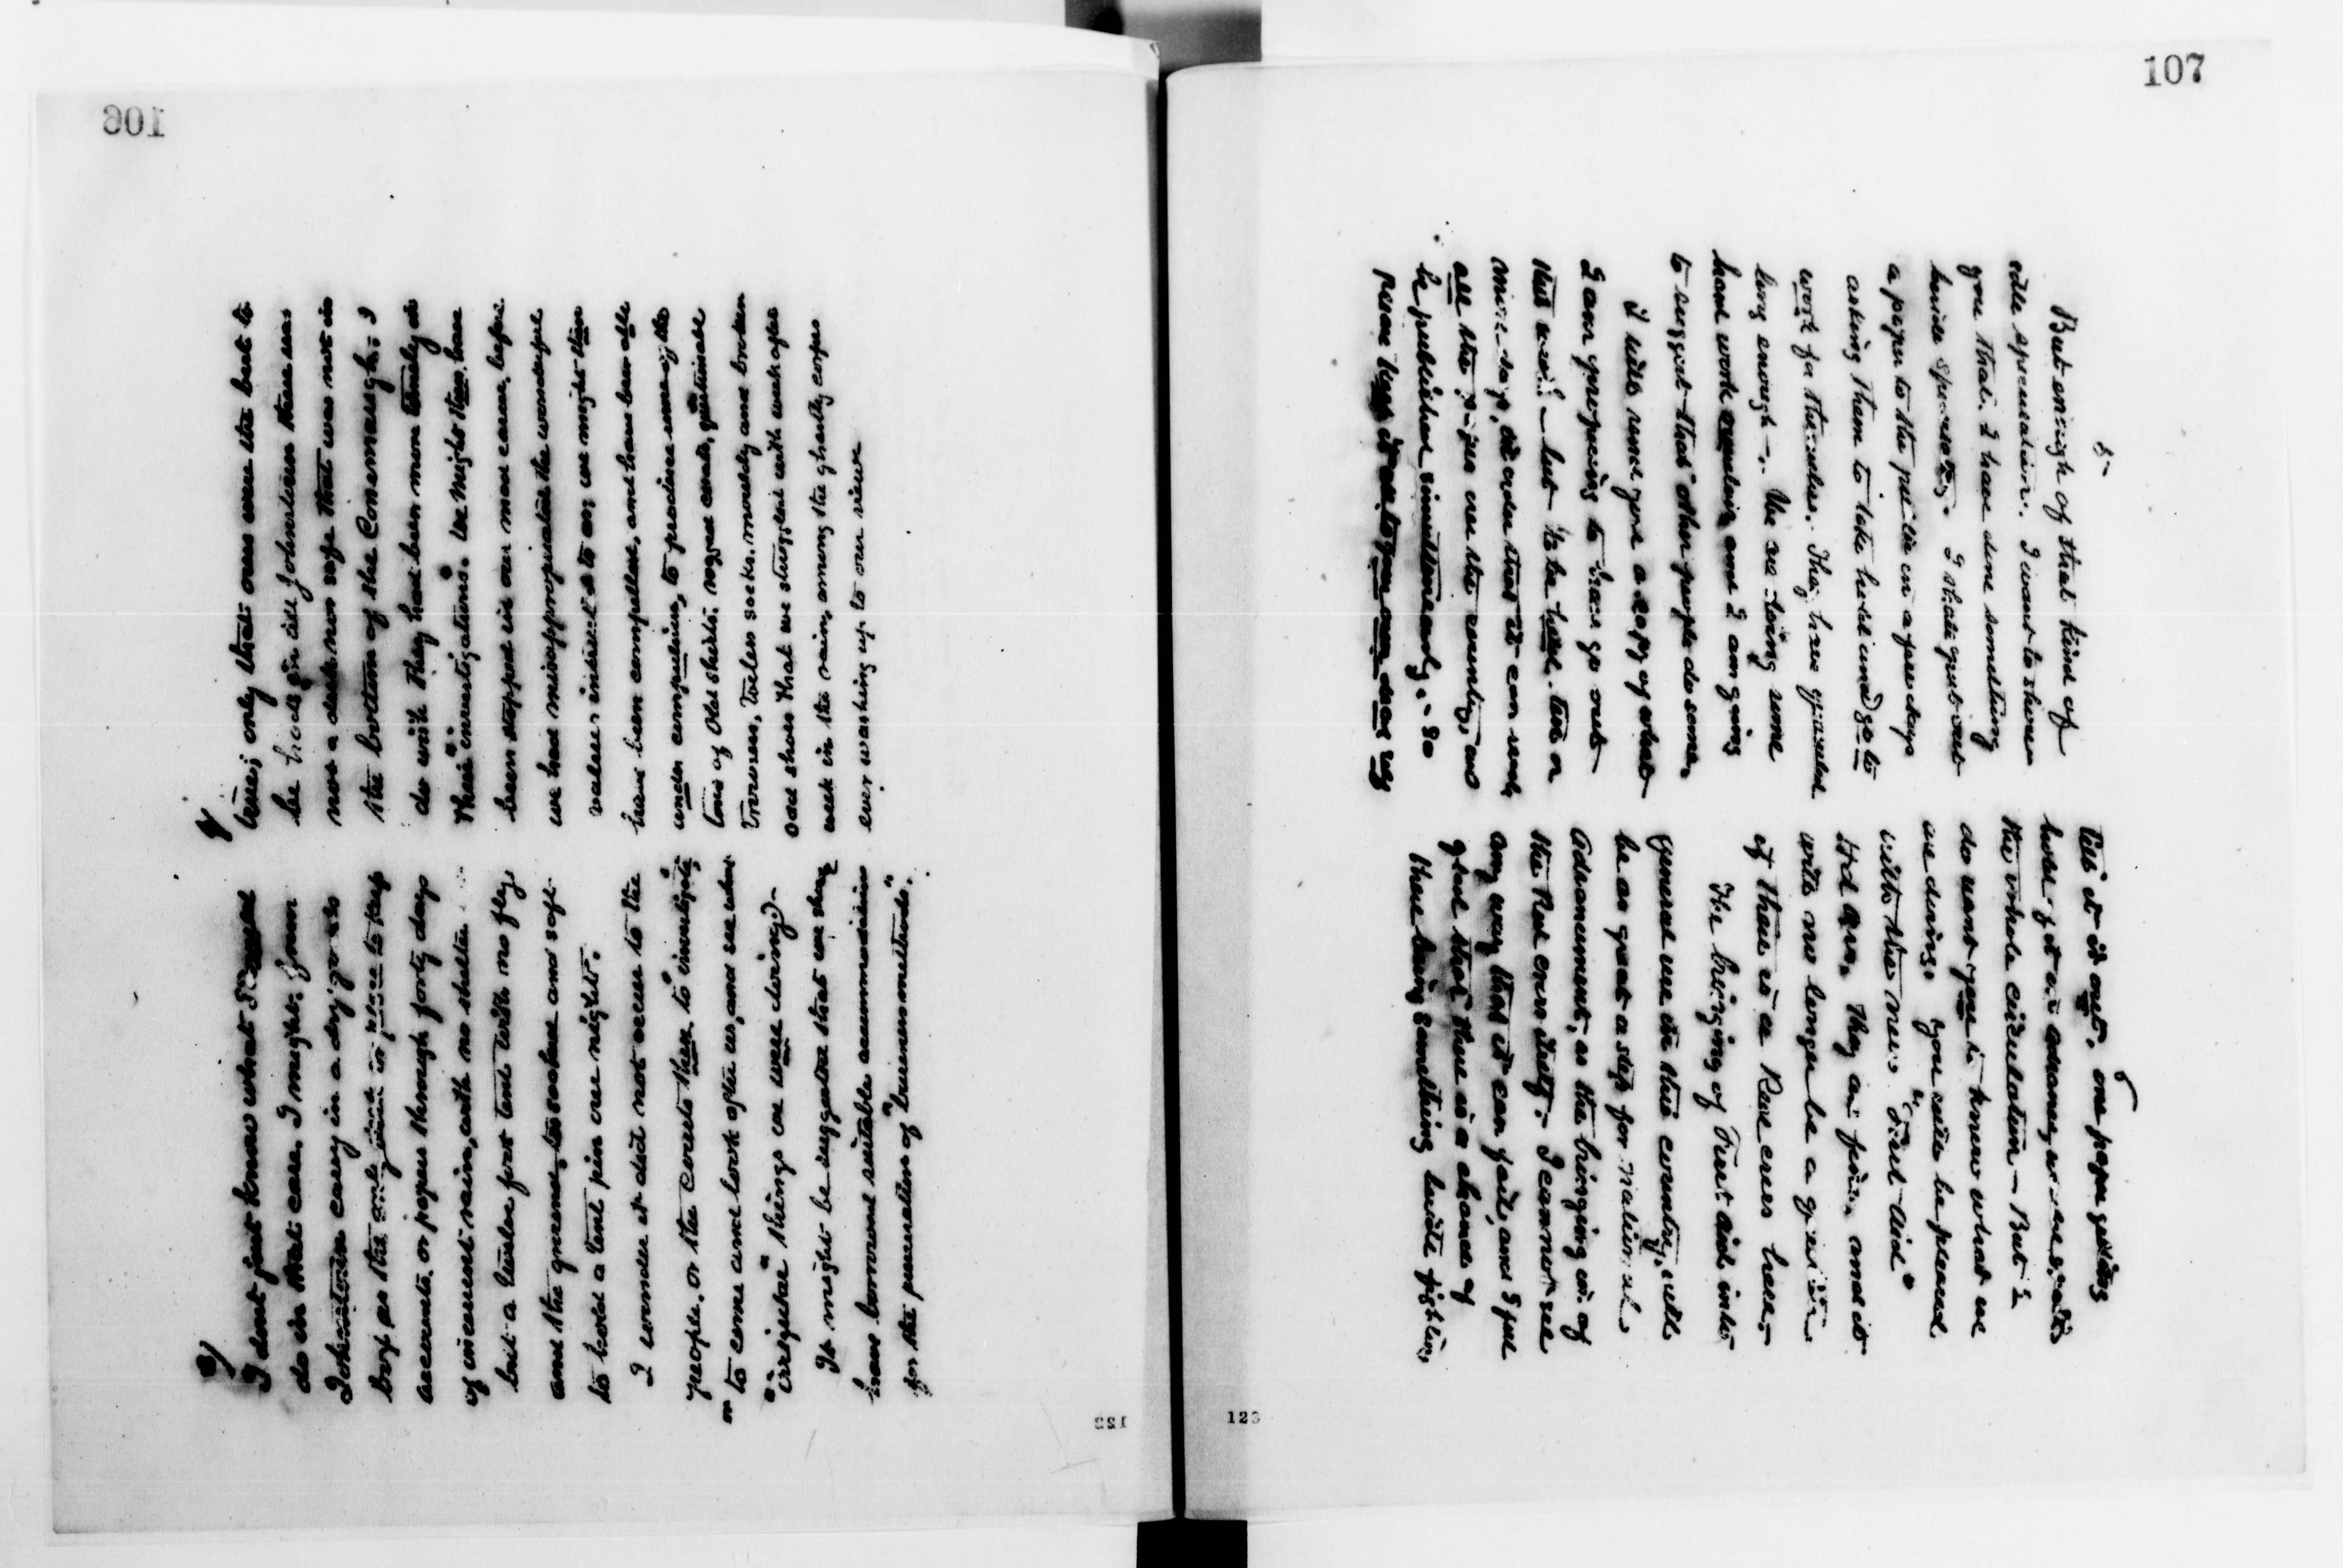 106
3)
I dont just know what I could
do in that case. I might. from
Johnstown carry in a dry goods
box as the only [way] in place to keep
accounts, or papers through forty days
of incessant rain, with no shelter
but a twelve foot tent with no fly
and the ground, too soaked and soft
to hold a tent pin one night.
I wonder it did not occur to the
people, or the courts then to "investigate"
or to come and look after us, and see what
"irregular" things we were doing.
It might be suggested that we then
have borrowed suitable accommodations
for the preservation of "business methods".
4)
true; only that ours were the best to
be had, for in all Johnstown there was
not a desk nor safe that was not in
the bottom of the Conemaugh; I
do wish they had been more timely in
their "investigations". We might then have
been stopped in our mad career, before
we had misappropriated the wonderful
values intrusted to us; we might then
have been compelled, and have been able
under compulsion, to produce some of the
tons of old shirts, ragged coats, seatless
trousers, toeless socks, mouldy and broken
old shoes that we struggled with week after
week in the rain, among the ghastly corpses
ever washing up to our view
107
5
But enough of that kind of
idle speculation. I want to show
you that I have done something
beside speculating. I shall put out
a paper to the public in a few days
asking them to take hold and go to
work for themselves. They have grumbled
long enough. We are doing some
hard work ourselves and I am going
to suggest that "other people do some."
I will send you a copy of what
I am proposing to have go out
this week but to be held two or
more days, in order that it can reach
all the papers over the country, and
be published simultaneously. So
please keep it to your own dear self
till it is out. One paper getting
hold of it in advance, would spoil
the whole circulation — But I
do want you to know what we
are doing. You will be pleased
with the new "First Aid"
Hd Qrs. They are fine. and it
will no longer be a question
if there is a Red Cross here.
The bringing of First aid into
general use in this country, will
be as great a step for national
advancement, as the bringing in of
the Red Cross itself. I cannot see
any way that it can fail, and I feel
glad that there is a chance of
there being something beside fighting
122
123